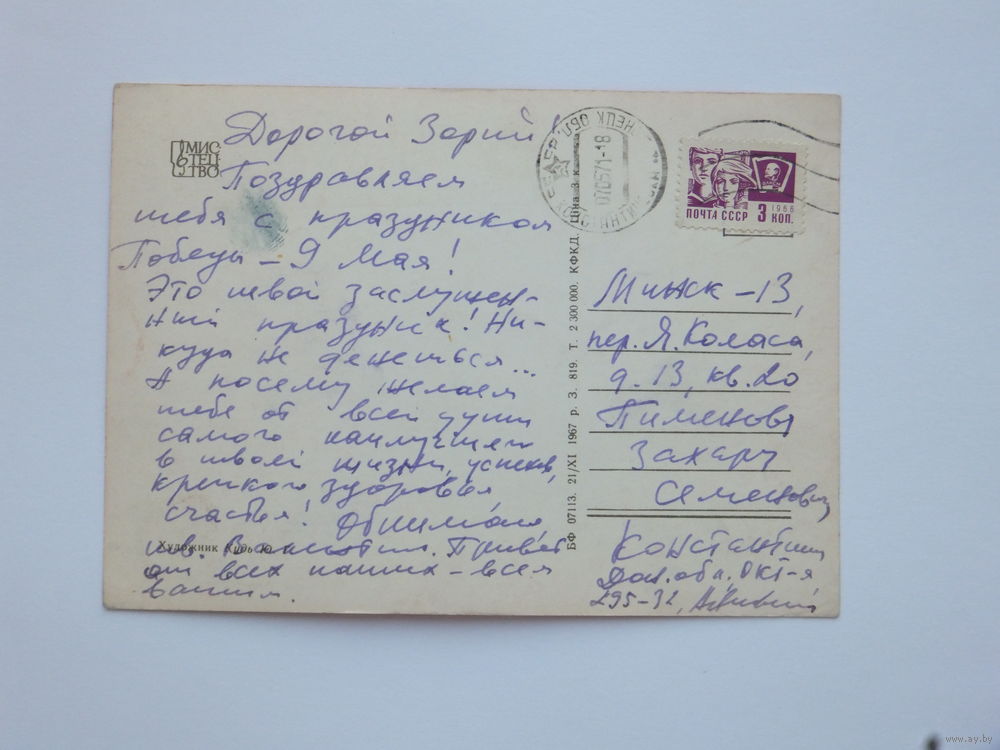 МИС
ТЕЦ
ТВО
Дорогой Зорий!
Поздравляем
тебя с праздником
Победы – 9 мая!
Это твой заслужен-
ный праздник! Ни-
куда не денешься...
А посему желаем
тебе от всей души
самого наилучшего
в твоей жизни, успехов,
крепкого здоровья,
счастья! Обнимаем,
Привет
от всех наших – всем
вашим.
Художник Ю.
БФ 07113. 21/XI 1967 р. З. 819. Т. 2 300 000. КФКД. Ціна 3 к.
НЕЦК ОБЛ
070571-18
ПОЧТА СССР 3 КОП.
1966
Минск – 13,
пер. Я. Коласа,
д. 13, кв. 20
Пименову
Захару
Семеновичу
Дон. обл., Окт-я
295-32,
www.ay.by